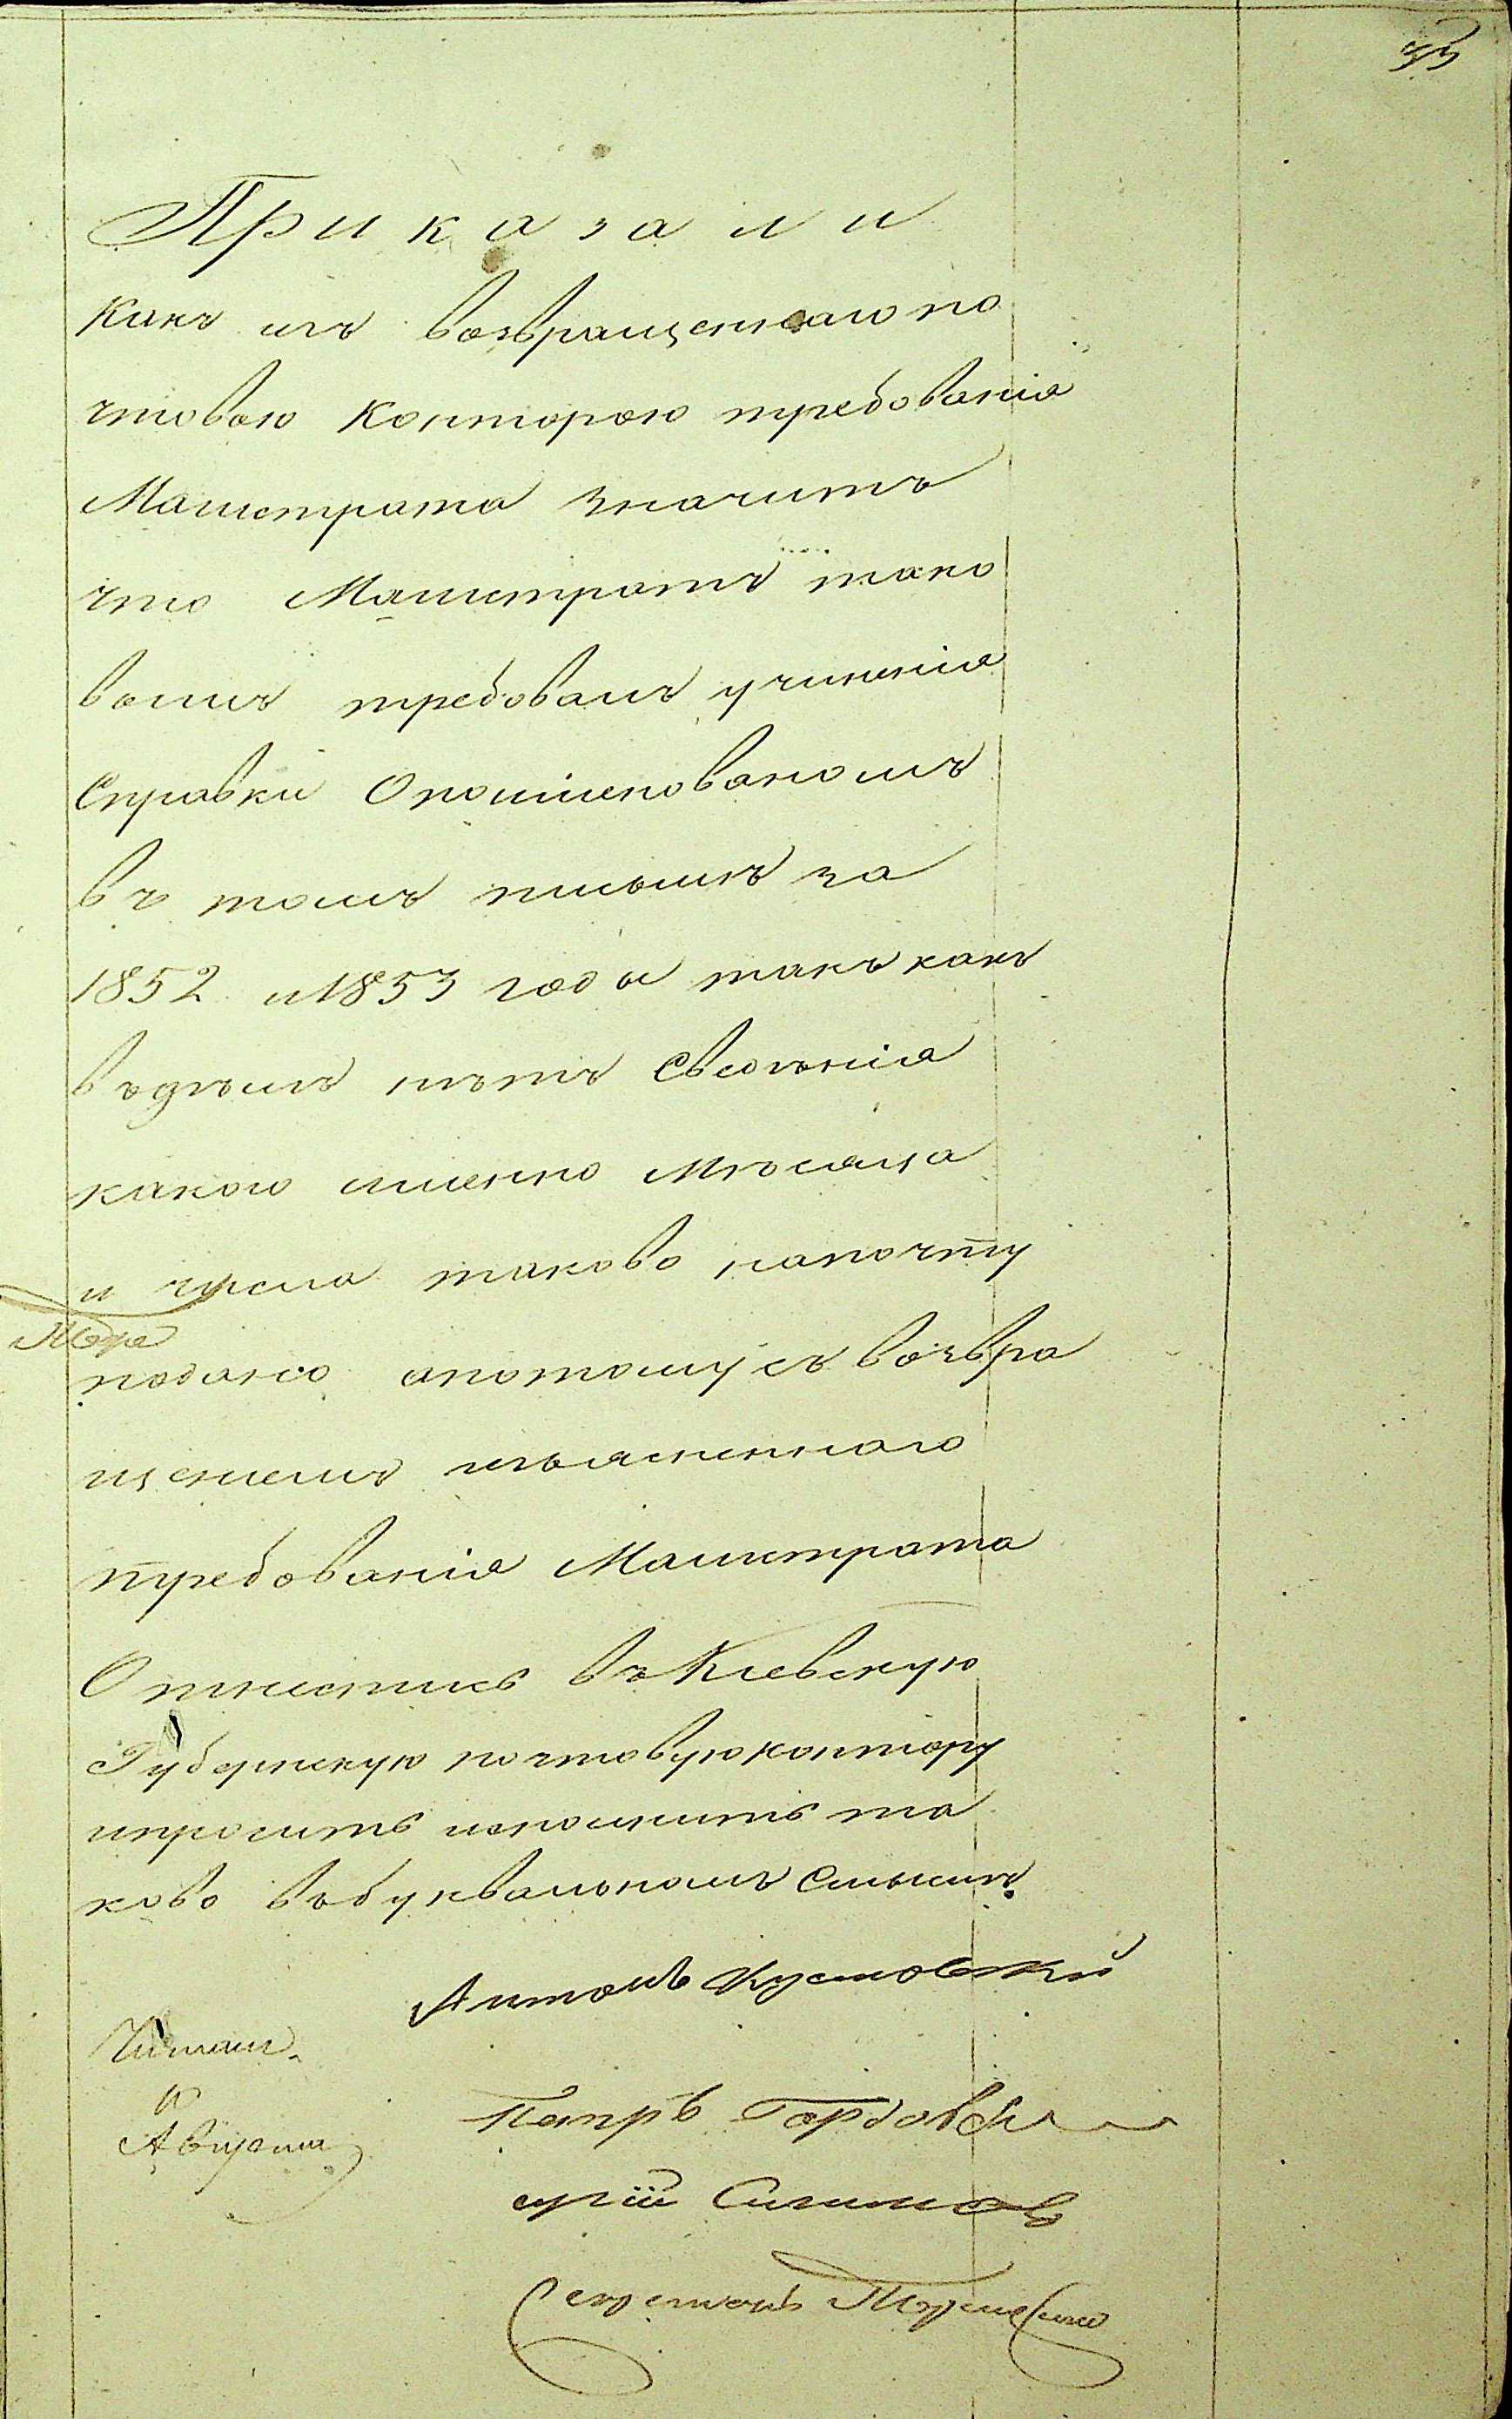 33
Приказали
Какъ изъ возвращеннаго по
чтовою Конторою требованія
Магистрата значитъ
что Магистратъ тако
вымъ требовалъ учиненія
Справки Опоимянованомъ
въ томъ письмѣ за
1852 и 1853 годы такъ какъ
въ дѣлѣ нѣтъ Сведѣнія
какого именно Мѣсяца
и числа таково напочту
подано апотому съ возвра
щеніемъ изъясненнаго
требованія Магистрата
Отнестись въ Кіевскую
Губернскую почтовую контору
ипросить исполнить та
ково въбуквальномъ Смыслѣ.
Антонъ
Читалъ
Августа
Петръ
Секретарь